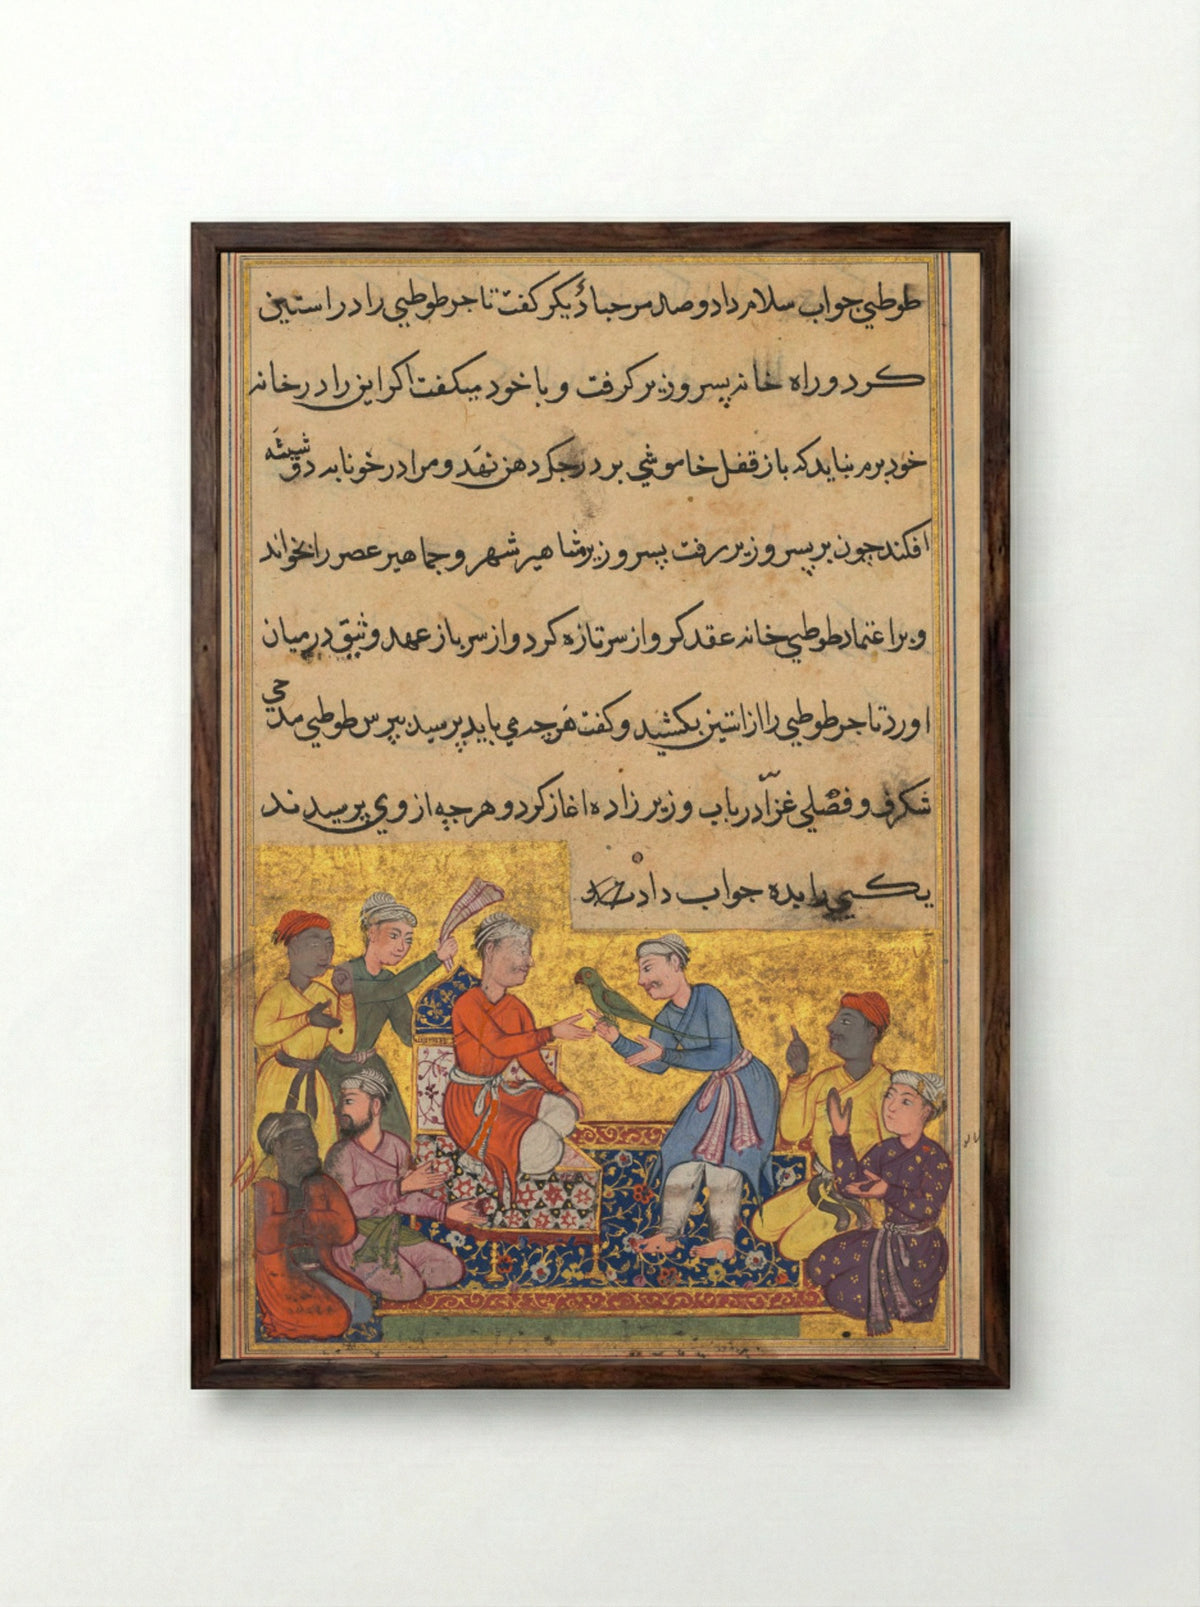 طوطی جواب سلام داد و صد مرحبا دیگر گفت تاجر طوطی را در استین
کرد و راه خانه پسر وزیر گرفت و با خود میگفت اگر این را در خانه
خود برم نباید که باز قفل خاموشی بر درجک دهن نهد و مرا در خونابه
افکند چون بر پسر وزیر رفت پسر وزیر مشاهیر شهر و جماهیر عصر را بخواند
و بر اعتماد طوطی خانه عقد کرو از سر تازه کرد و از سر باز عهد وثیق در میان
اورد تاجر طوطی را از استین بکشید و گفت هر چه می باید پرسید بپرس طوطی مدحی
شکرف و فصلی غرا در باب وزیر زاده اغاز کرد و هر چه از وی پرسیدند
یکی را بده جواب داد